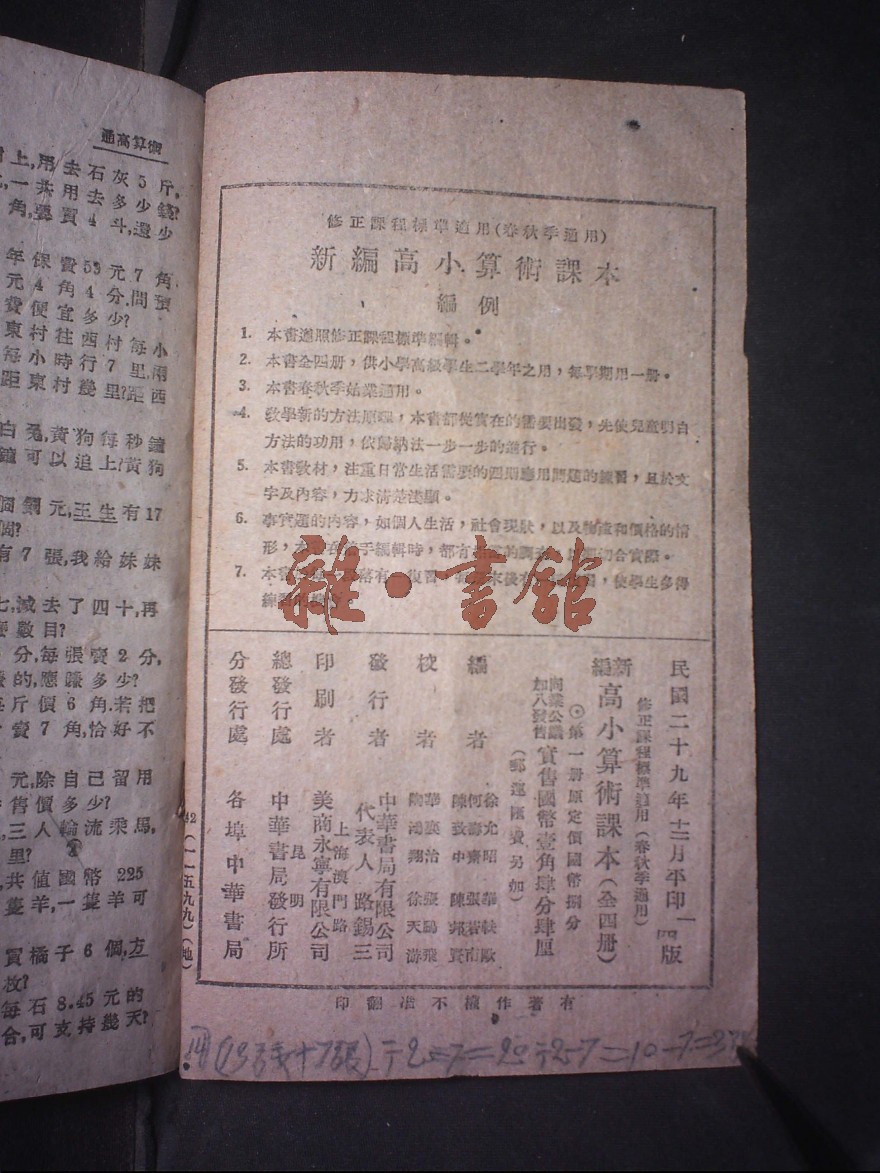 修正課程標準適用(春秋季適用)
新編高小算術課本
編例
1. 本書遵照修正課程標準編輯。
2. 本書全四册，供小學高級學生二學年之用，每學期用一册。
3. 本書春秋季始業適用。
4. 教學新的方法原理，本書都從實在的需要出發，先使兒童明白
方法的功用，依歸納法一步一步的進行。
5. 本書教材，注重日常生活需要的
應用問題的練習，且於文
字及內容，力求清楚淺顯。
6. 事實題的內容，如個人生活，社會現狀，以及物產和價格的情
形，
手編輯時，都有
合實際。
7. 本書
復習
使學生多得
雜·書館
民國二十九年十二月平印
四版
修正課程標準適用(春秋季適用)
新編高小算術課本(全四册)
第一册原定價國幣捌分
加八發售
實售國幣壹角肆分肆厘
(郵運匯費另加)
編者
徐允昭
何壽齋
張
陳
校者
華襄治
張鵬飛
陶鴻翔
徐天游
發行者
中華書局有限公司
代表人 路錫三
上海澳門路
印刷者
美商永寧有限公司
總發行處
昆明
中華書局發行所
分發行處
各埠中華書局
有著作權不准翻印
(一一五九九)(地)
高算術
上,用去石灰5斤,
一共用去多少錢?
角,要買4斗,還少
年保費53元7角
元4角4分.問預
費便宜多少?
東村往西村每小
每小時行7里.兩
距東村幾里?距西
白兎,黃狗每秒鐘
鐘可以追上?黃狗
個銅元,王生有17
個?
有7張,我給妹妹
七,減去了四十,再
麼數目?
分,每張賣2分,
賣的,應賺多少?
每斤價6角.若把
賣7角,恰好不
元,除自己留用
售價多少?
三人輪流乘馬,
里?
共值國幣225
隻羊,一隻羊可
買橘子6個,方
枚?
每石8.45元的
合,可支持幾天?